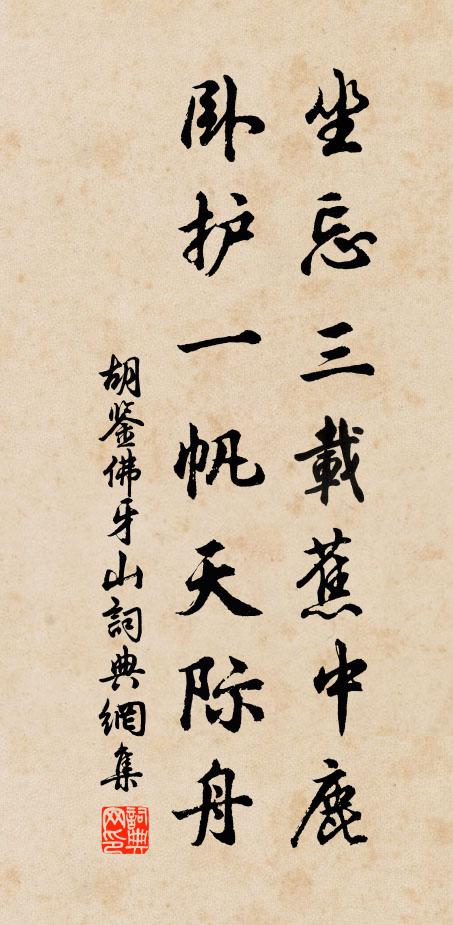 坐忘三載蕉中鹿
卧护一帆天际舟
胡鉴佛牙山詞典網集
詞典网印